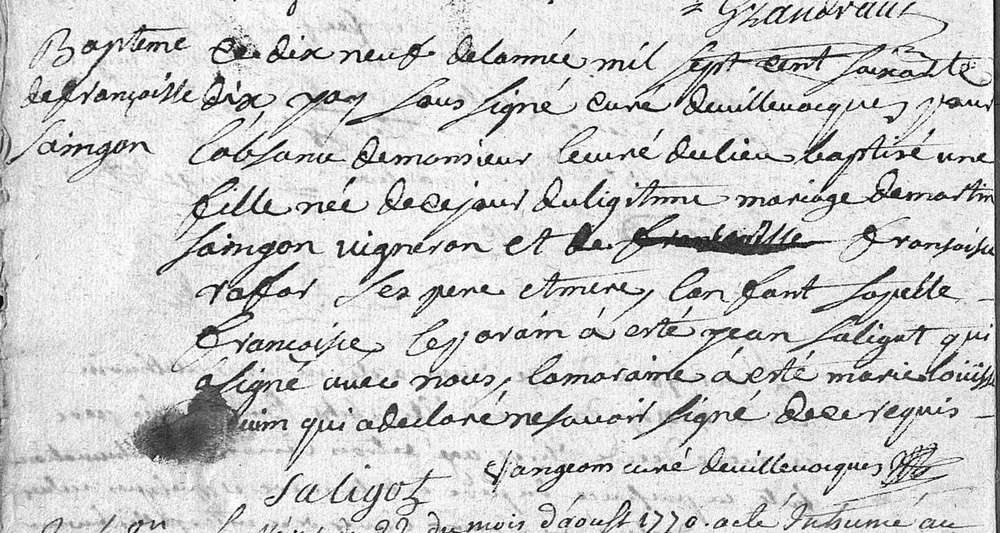 Grandrault
Bapteme
de françoisse
saingon
Ce dix neuf delannée mil sept cent soixante
dix jay sous signé curé devillevocques pour
labsance demonsieur lecuré dulieu baptisé une
fille née decejour duligitime mariage demartin
saingon vigneron et de francoisse francoise
raffar ses pere etmere, lanfant sapelle
francoise, leparain á esté jean saligot qui
a signé avec nous, lamaraine á esté marie louisse
qui adeclaré nesavoir signé dece requis
saligot
vangeom curé devillevocques
du mois daoust 1770. a eté Inhumé au